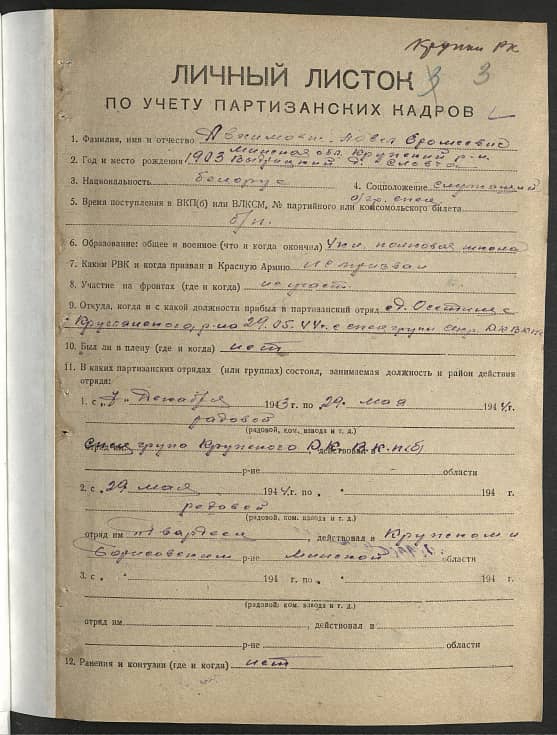 Крупки РК
3
ЛИЧНЫЙ ЛИСТОК
ПО УЧЕТУ ПАРТИЗАНСКИХ КАДРОВ
1. Фамилия, имя и отчество Павел
Минская обл. Крупский р-н.
2. Год и место рождения 1903 д.
3. Национальность белорус 4. Соцположение служащий
5. Время поступления в ВКП(б) или ВЛКСМ, № партийного или комсомольского билета
б/п.
6. Образование: общее и военное (что и когда окончил) полковая школа
7. Каким РВК и когда призван в Красную Армию не призван
8. Участие на фронтах (где и когда) не участ.
9. Откуда, когда и с какой должности прибыл в партизанский отряд д.
р-на 29.05.44 г. с спец групы
10. Был ли в плену (где и когда) нет
11. В каких партизанских отрядах (или группах) состоял, занимаемая должность и район действия
отряда:
1. с Декабря 1943 г. по 29 мая 1944 г.
рядовой
(рядовой, ком. взвода и т. д.)
група Крупского РК ВКП(б)
р-не области
2. с 29 мая 1944 г. по „ " 194 г.
рядовой
(рядовой, ком. взвода и т. д.)
отряд им Гвардеец, действовал в Крупском и
Борисовским р-не Минской области
3. с „ " 194 г. по „ " 194 г.
(рядовой, ком. взвода и т. д.)
отряд им , действовал в
р-не области
12. Ранения и контузии (где и когда) нет